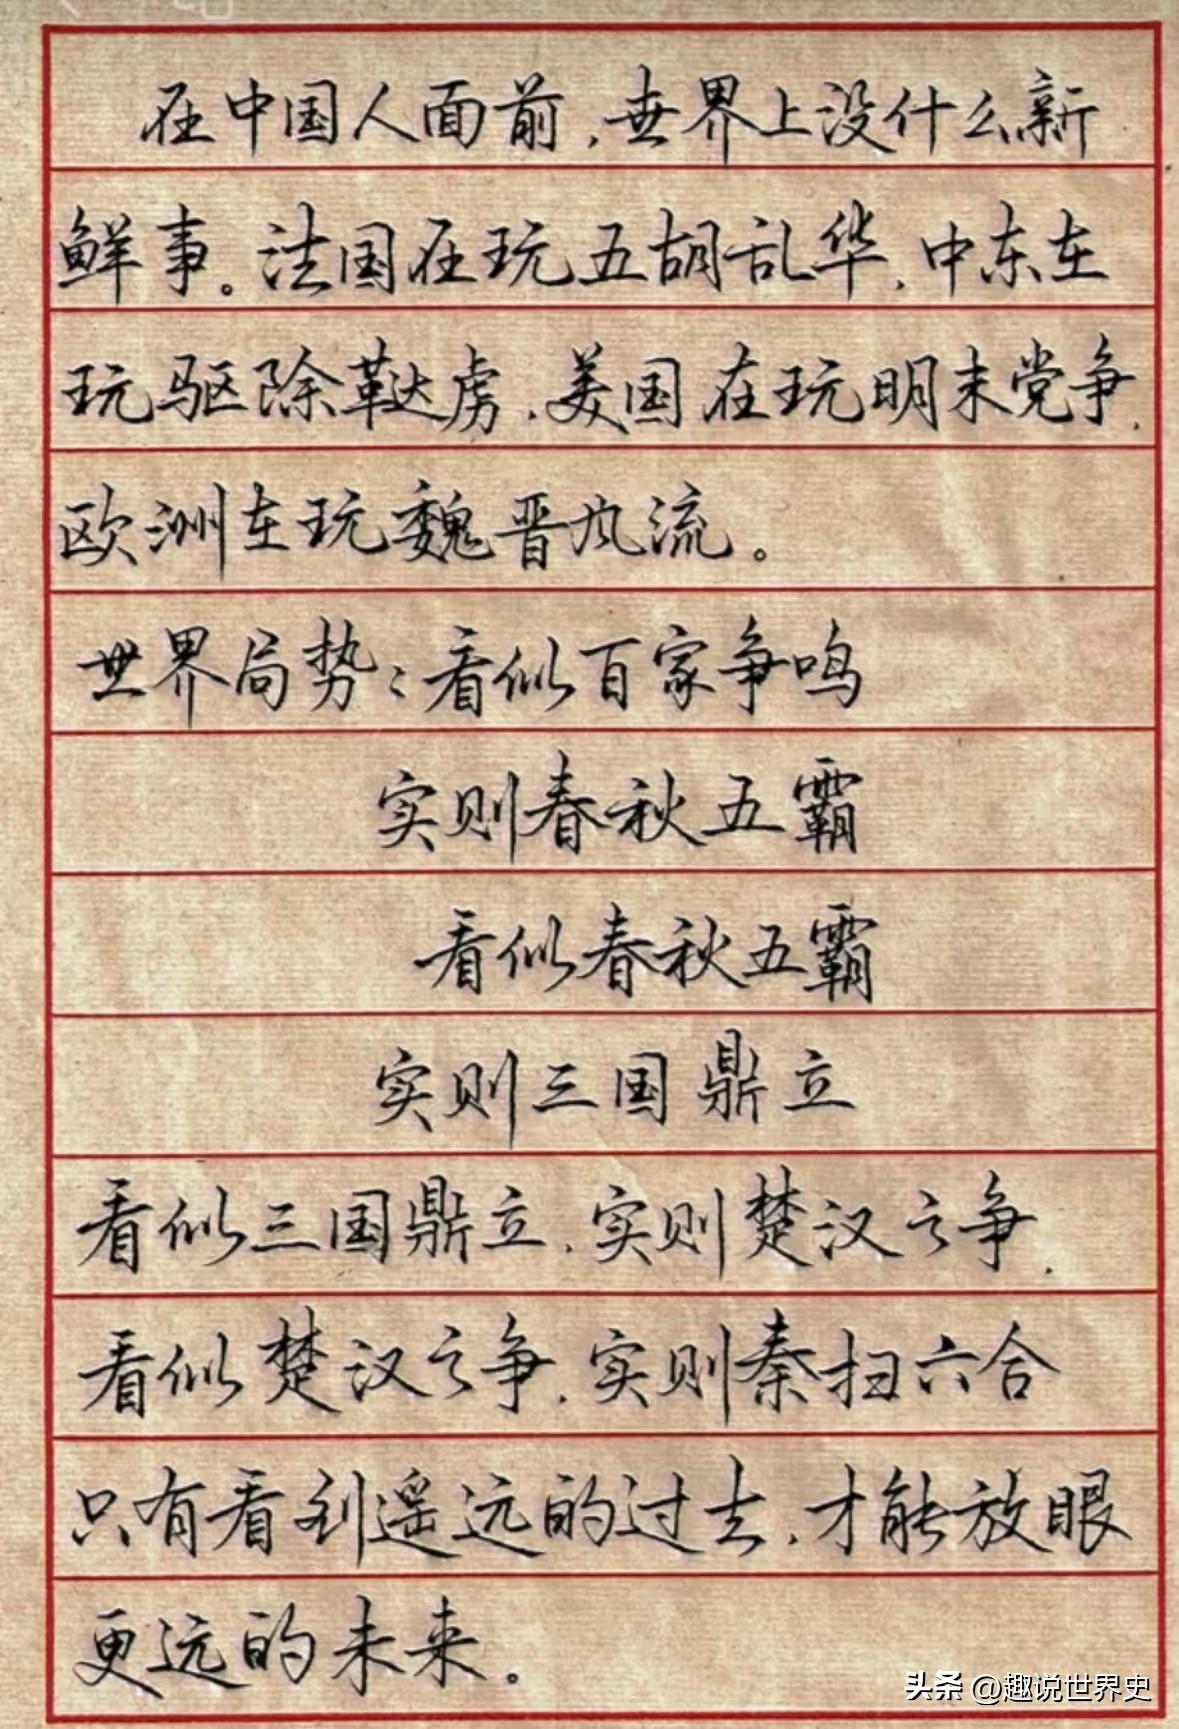 在中国人面前，世界上没什么新
鲜事。法国在玩五胡乱华，中东在
玩驱除鞑虏，美国在玩明末党争，
欧洲在玩魏晋风流。
世界局势：看似百家争鸣
实则春秋五霸
看似春秋五霸
实则三国鼎立
看似三国鼎立，实则楚汉之争，
看似楚汉之争，实则秦扫六合
只有看到遥远的过去，才能放眼
更远的未来。
头条 @趣说世界史